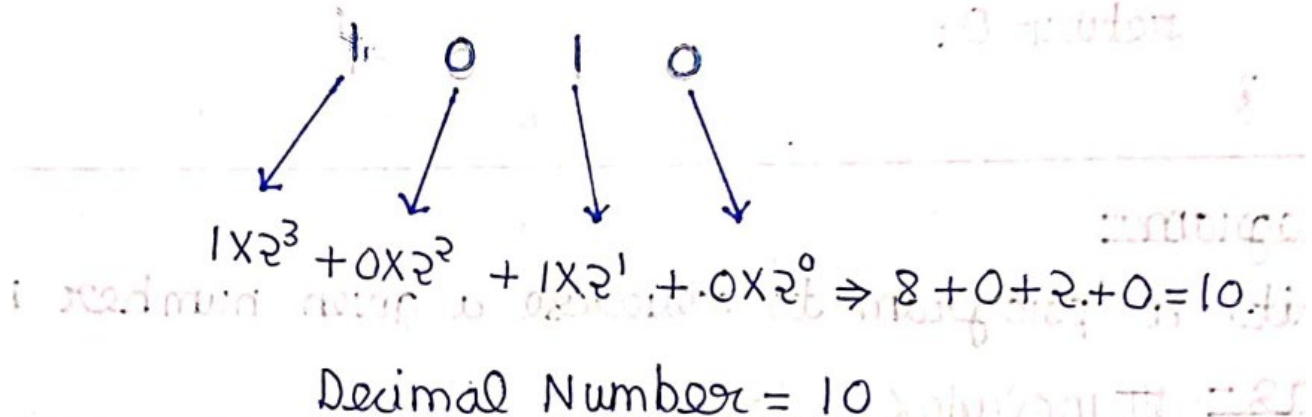 1 0 1 0
1X2³ + 0X2² + 1X2¹ + 0X2⁰ ⇒ 8 + 0 + 2 + 0 = 10.
Decimal Number = 10